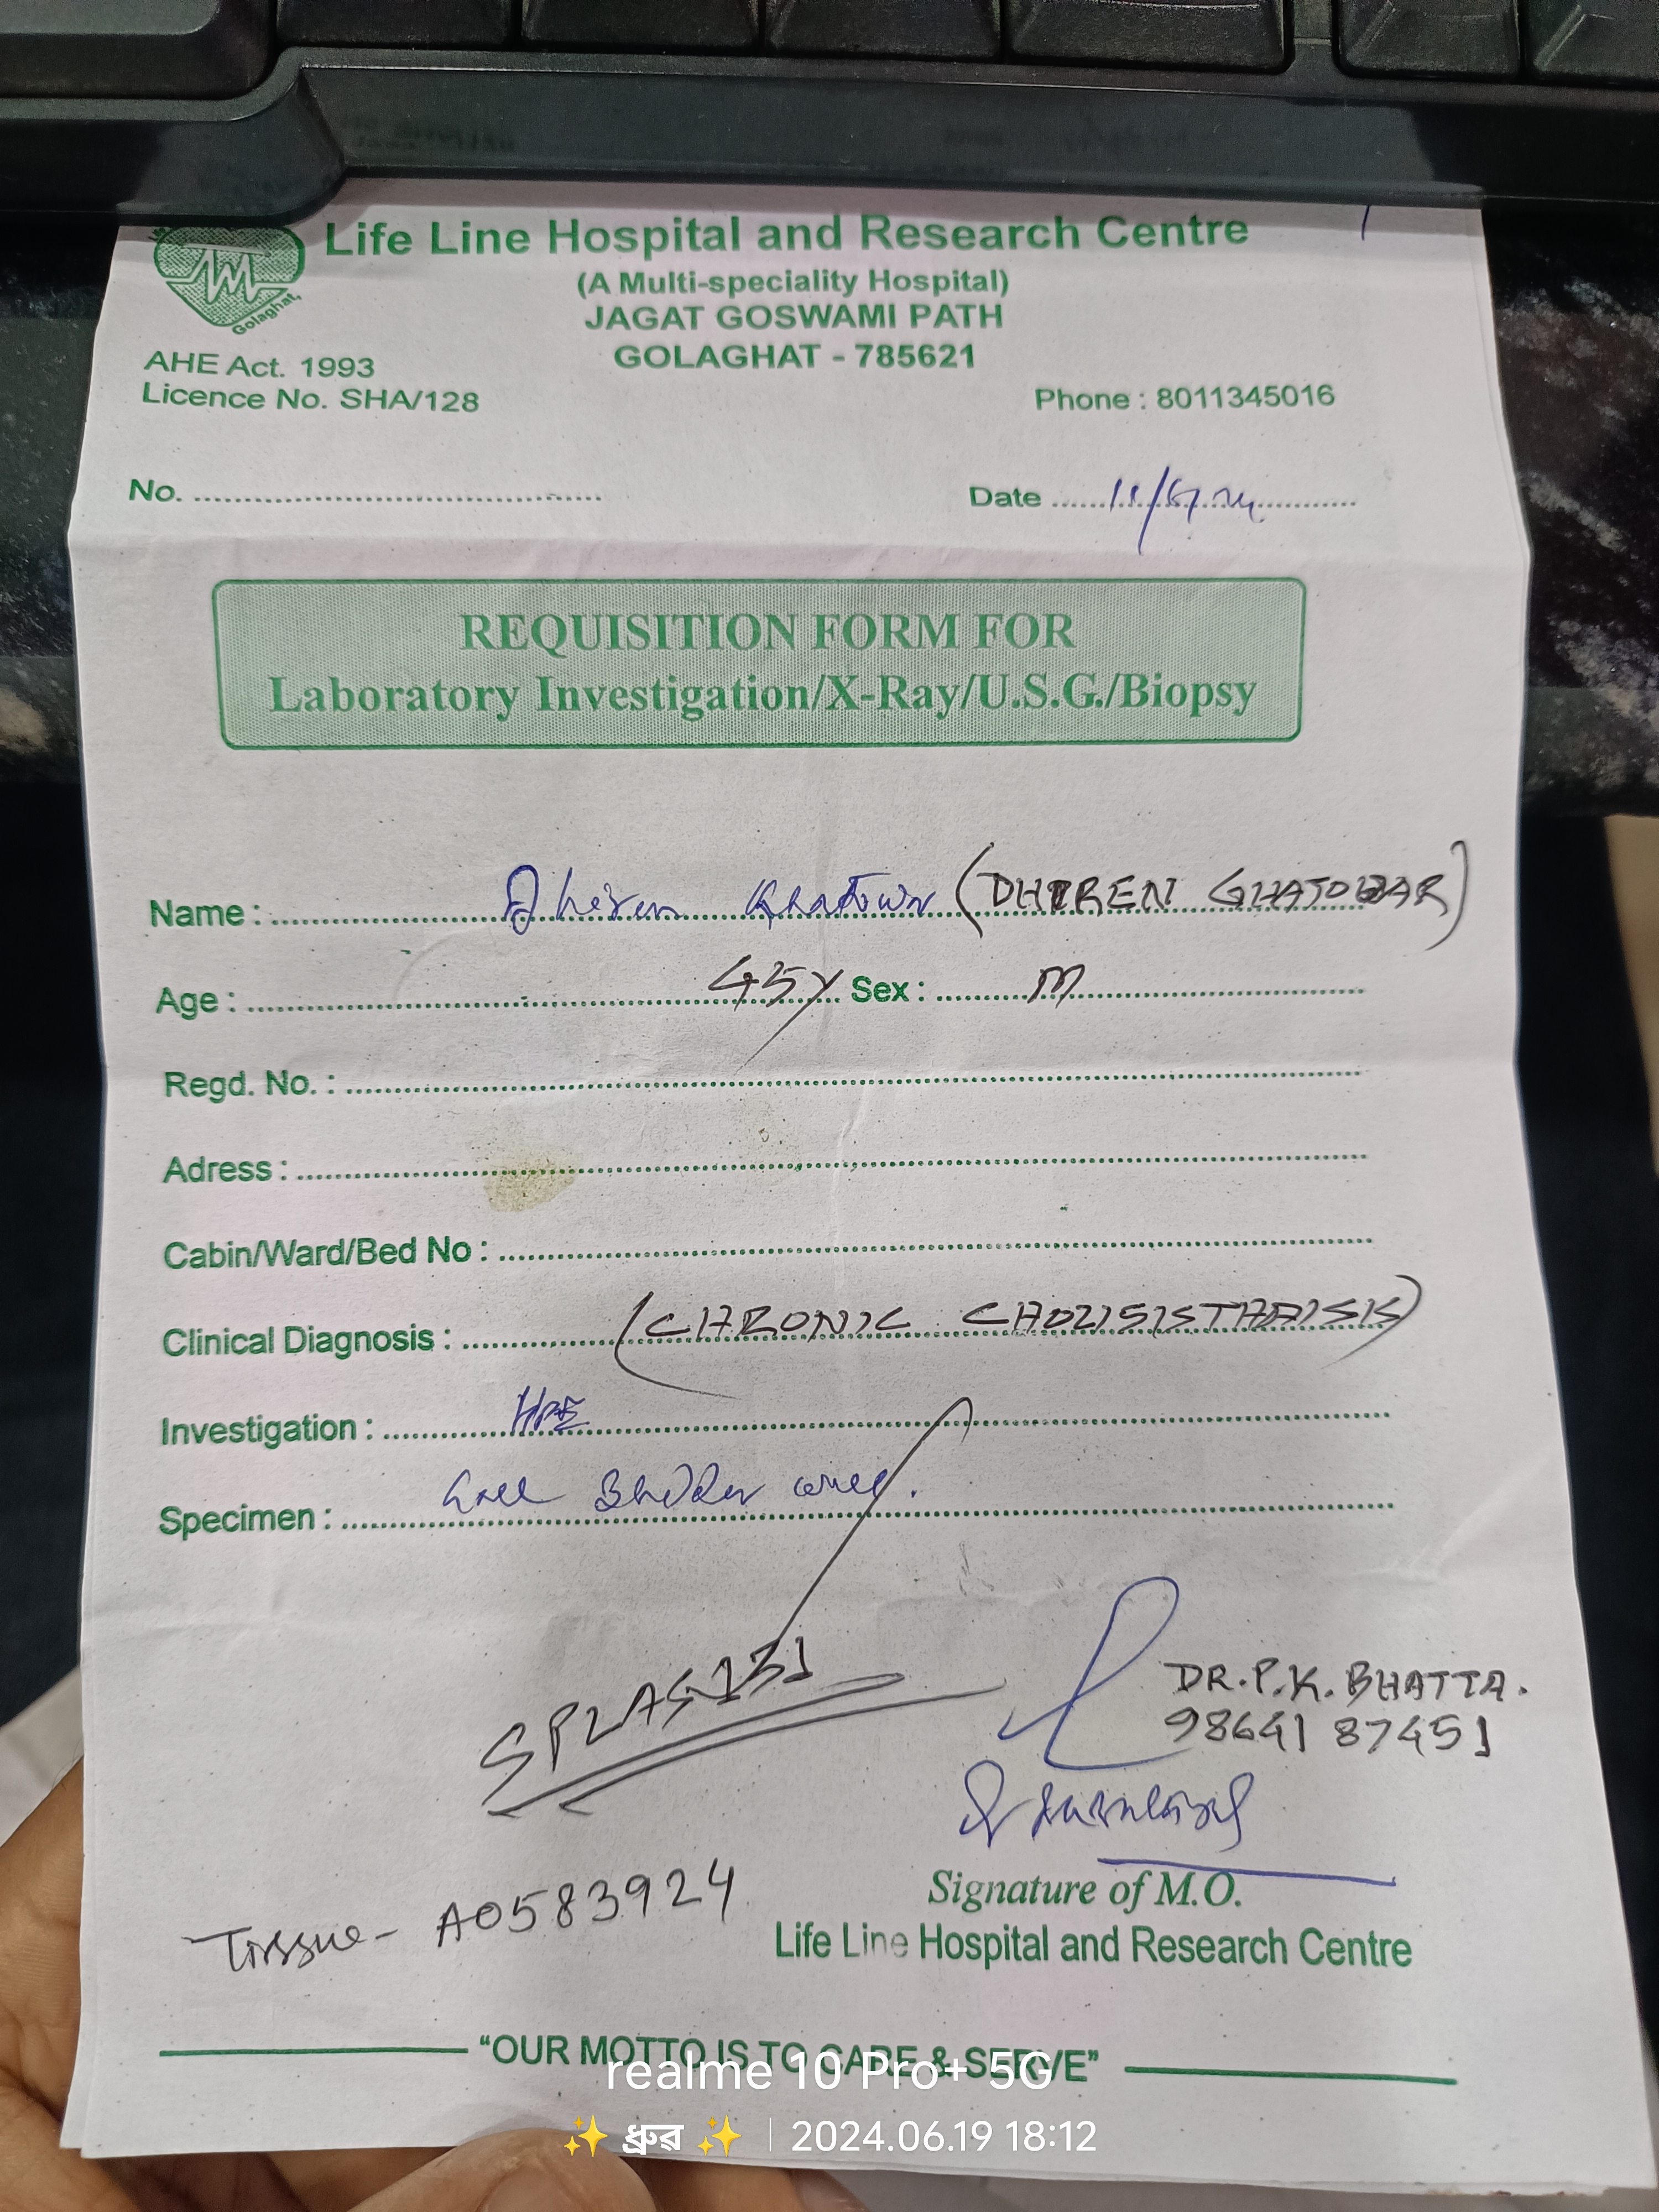 Life Line Hospital and Research Centre
(A Multi-speciality Hospital)
JAGAT GOSWAMI PATH
GOLAGHAT - 785621
Golaghat,
AHE Act. 1993
Licence No. SHA/128
Phone : 8011345016
No.
Date
REQUISITION FORM FOR
Laboratory Investigation/X-Ray/U.S.G./Biopsy
Name : Dhiren Ghatowar (DHIREN GHATOWAR)
Age : 45y Sex : M
Regd. No. :
Adress :
Cabin/Ward/Bed No :
Clinical Diagnosis : (CHRONIC CHOLISISTHAISIS)
Investigation : HPE
Specimen : Gall Bladder
SPLAS131
DR. P. K. BHATTA.
98641 87451
Signature of M.O.
Tissue - A0583924
Life Line Hospital and Research Centre
“OUR MOTTO IS TO CARE & SERVE”
realme 10 Pro+ 5G
✨ ধ্ৰুৱ ✨ | 2024.06.19 18:12